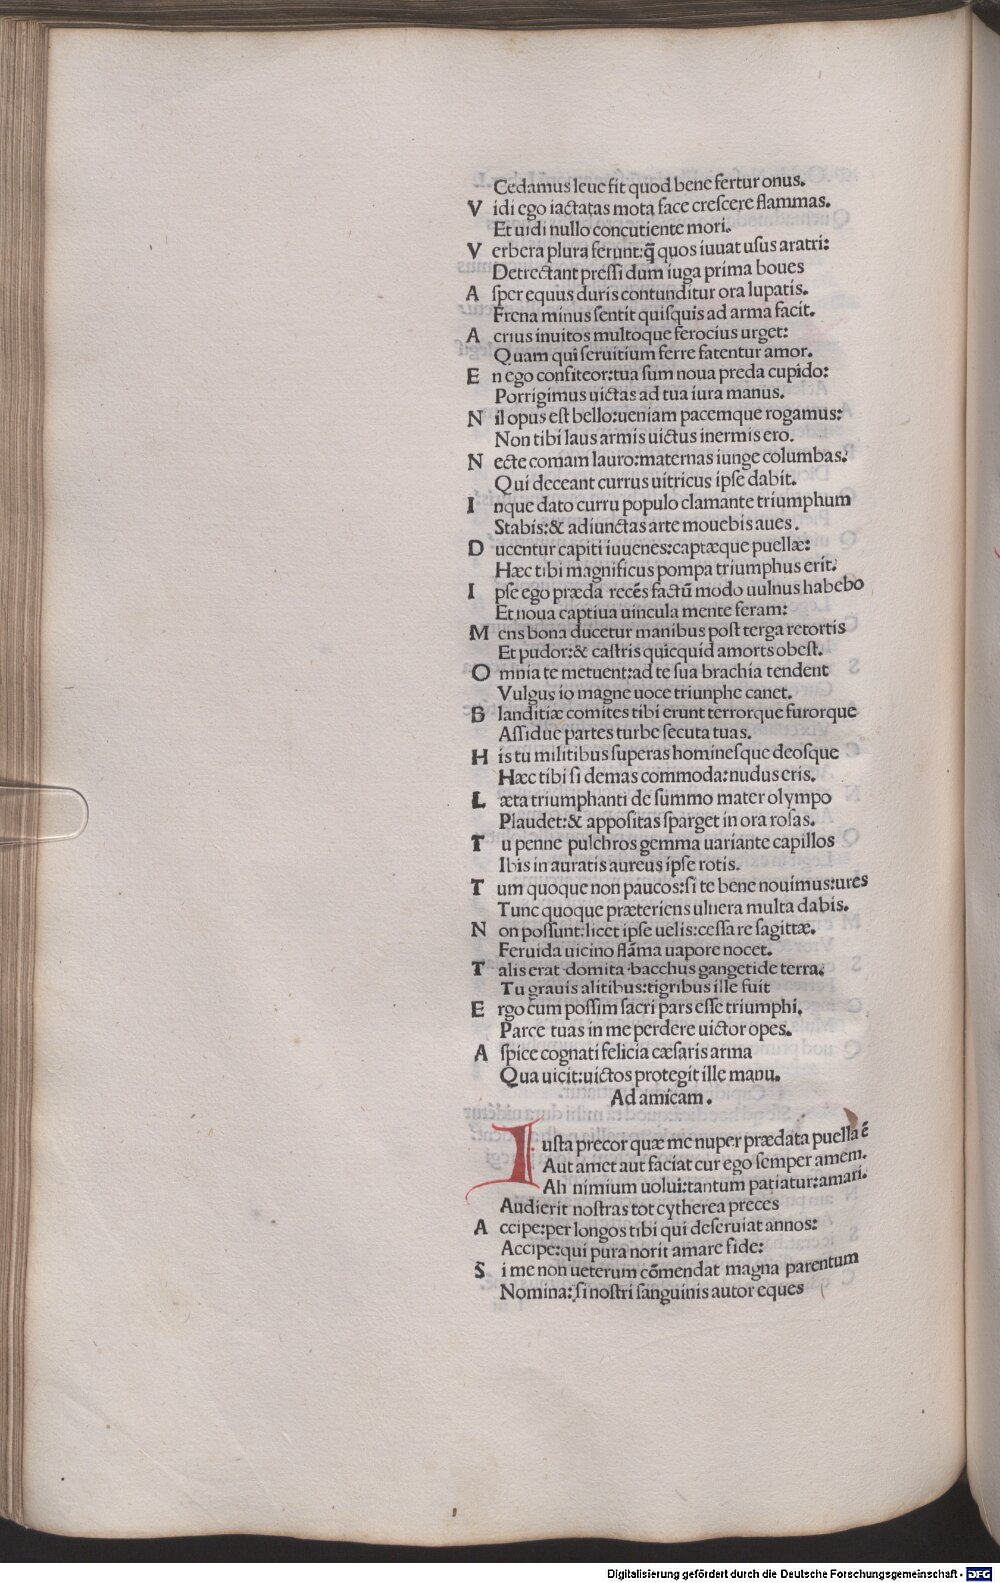 Cedamus leue fit quod bene fertur onus.
V idi ego iactatas mota face creſcere flammas.
Et uidi nullo concutiente mori.
V erbera plura ferunt:q̄ quos iuuat uſus aratri:
Detrectant preſſi dum iuga prima boues
A ſper equus duris contunditur ora lupatis.
Frena minus ſentit quiſquis ad arma facit.
A crius inuitos multoque ferocius urget:
Quam qui ſeruitium ferre fatentur amor.
E n ego confiteor:tua ſum noua preda cupido:
Porrigimus uictas ad tua iura manus.
N il opus eſt bello:ueniam pacemque rogamus:
Non tibi laus armis uictus inermis ero.
N ecte comam lauro:maternas iunge columbas:
Qui deceant currus uitricus ipſe dabit.
I nque dato curru populo clamante triumphum
Stabis:& adiunctas arte mouebis aues.
D ucentur capiti iuuenes:captæque puellæ:
Hæc tibi magnificus pompa triumphus erit:
I pſe ego præda recēs factū modo uulnus habebo
Et noua captiua uincula mente feram:
M ens bona ducetur manibus poſt terga retortis
Et pudor:& caſtris quicquid amorts obeſt.
O mnia te metuent:ad te ſua brachia tendent
Vulgus io magne uoce triunphe canet.
B landitiæ comites tibi erunt terrorque furorque
Aſſidue partes turbe ſecuta tuas.
H is tu militibus ſuperas hominesque deoſque
Hæc tibi ſi demas commoda:nudus eris.
L æta triumphanti de ſummo mater olympo
Plaudet:& appoſitas ſparget in ora roſas.
T u penne pulchros gemma uariante capillos
Ibis in auratis aureus ipſe rotis.
T um quoque non paucos:ſi te bene nouimus:ures
Tunc quoque præteriens ulnera multa dabis.
N on poſſunt:licet ipſe uelis:ceſſare ſagittæ.
Feruida uicino flāma uapore nocet.
T alis erat domita bacchus gangetide terra.
Tu grauis alitibus:tigribus ille fuit
E rgo cum poſſim ſacri pars eſſe triumphi.
Parce tuas in me perdere uictor opes.
A ſpice cognati felicia cæſaris arma
Qua uicit:uictos protegit ille manu.
Ad amicam.
I uſta precor quæ me nuper prædata puella ē
Aut amet aut faciat cur ego ſemper amem.
Ah nimium uolui:tantum patiatur:amari.
Audierit noſtras tot cytherea preces
A ccipe:per longos tibi qui deſeruiat annos:
Accipe:qui pura norit amare fide:
S i me non ueterum cōmendat magna parentum
Nomina:ſi noſtri ſanguinis autor eques
Digitalisierung gefördert durch die Deutsche Forschungsgemeinschaft - DFG